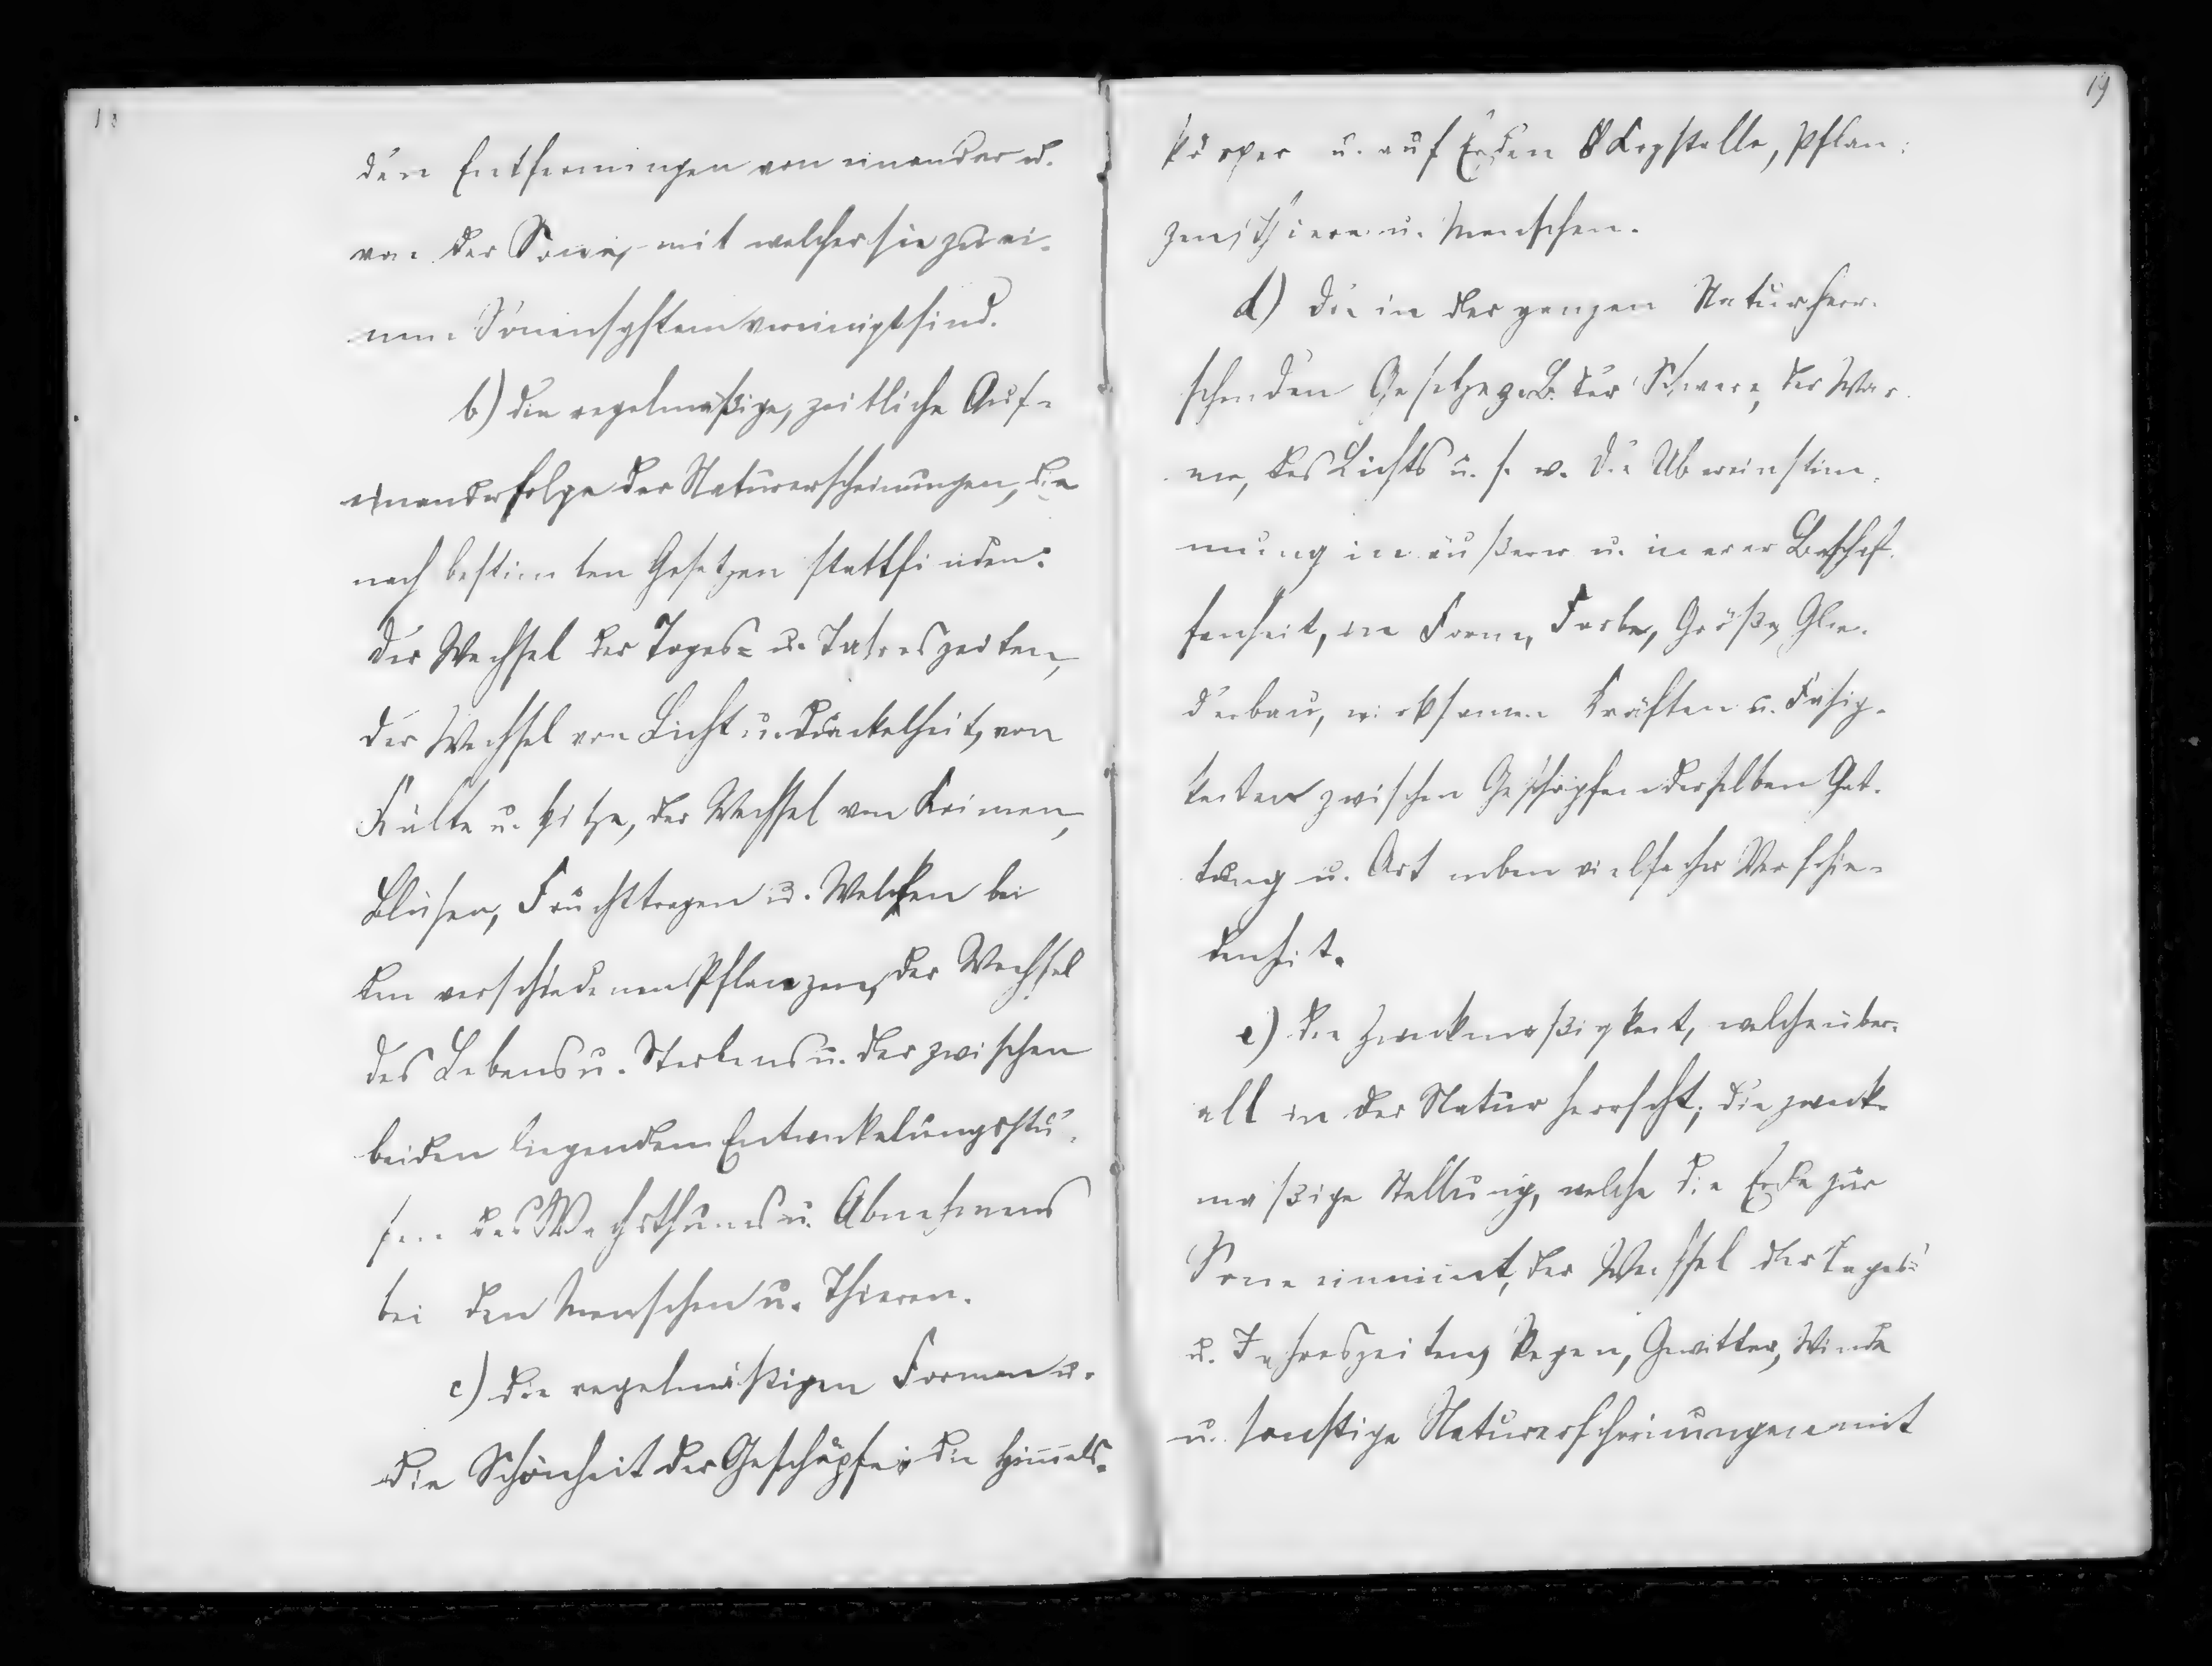 18
den Entfernungen von einander u.
von der Sonne, mit welcher sie zu ei-
nem Sonnensystem vereinigt sind.
b) die regelmäßige, zeitliche Auf-
einanderfolge der Naturerscheinungen, die
nach bestimten Gesetzen stattfinden:
der Wechsel der Tages- u. Jahreszeiten,
der Wechsel von Licht u. Dunkelheit, von
Kälte u. Hitze, der Wechsel von Keimen,
Blühen, Früchttragen u. Welken bei
den verschiedenen Pflanzen, der Wechsel
des Lebens u. Sterbens u. der zwischen
beiden liegenden Entwickelungsstu-
fen des Wachsthums u. Abnehmens
bei den Menschen u. Thieren.
c) die regelmäßigen Formen u.
die Schönheit der Geschöpfe: die Himels-
19
körper u. auf Erden Krystalle, Pflan-
zen, Thiere u. Menschen.
d) Die in der ganzen Natur herr-
schenden Gesetze z. B. der Schwere, der Wär-
me, des Lichts u. s. w. Die Übereinstim-
mung in äußerer u. inerer Beschaf-
fenheit, in Form, Farbe, Größe, Glie-
derbau, wirksamen Kräften u. Fähig-
keiten zwischen Geschöpfen derselben Gat-
tung u. Art neben vielfacher Verschie-
denheit.
e) die Zweckmäßigkeit, welche über-
all in der Natur herrscht; die zweck-
mäßige Stellung, welche die Erde zur
Sone einnimt, der Wechsel der Tages-
u. Jahreszeiten, Regen, Gewitter, Winde
u. sonstige Naturerscheinungen mit